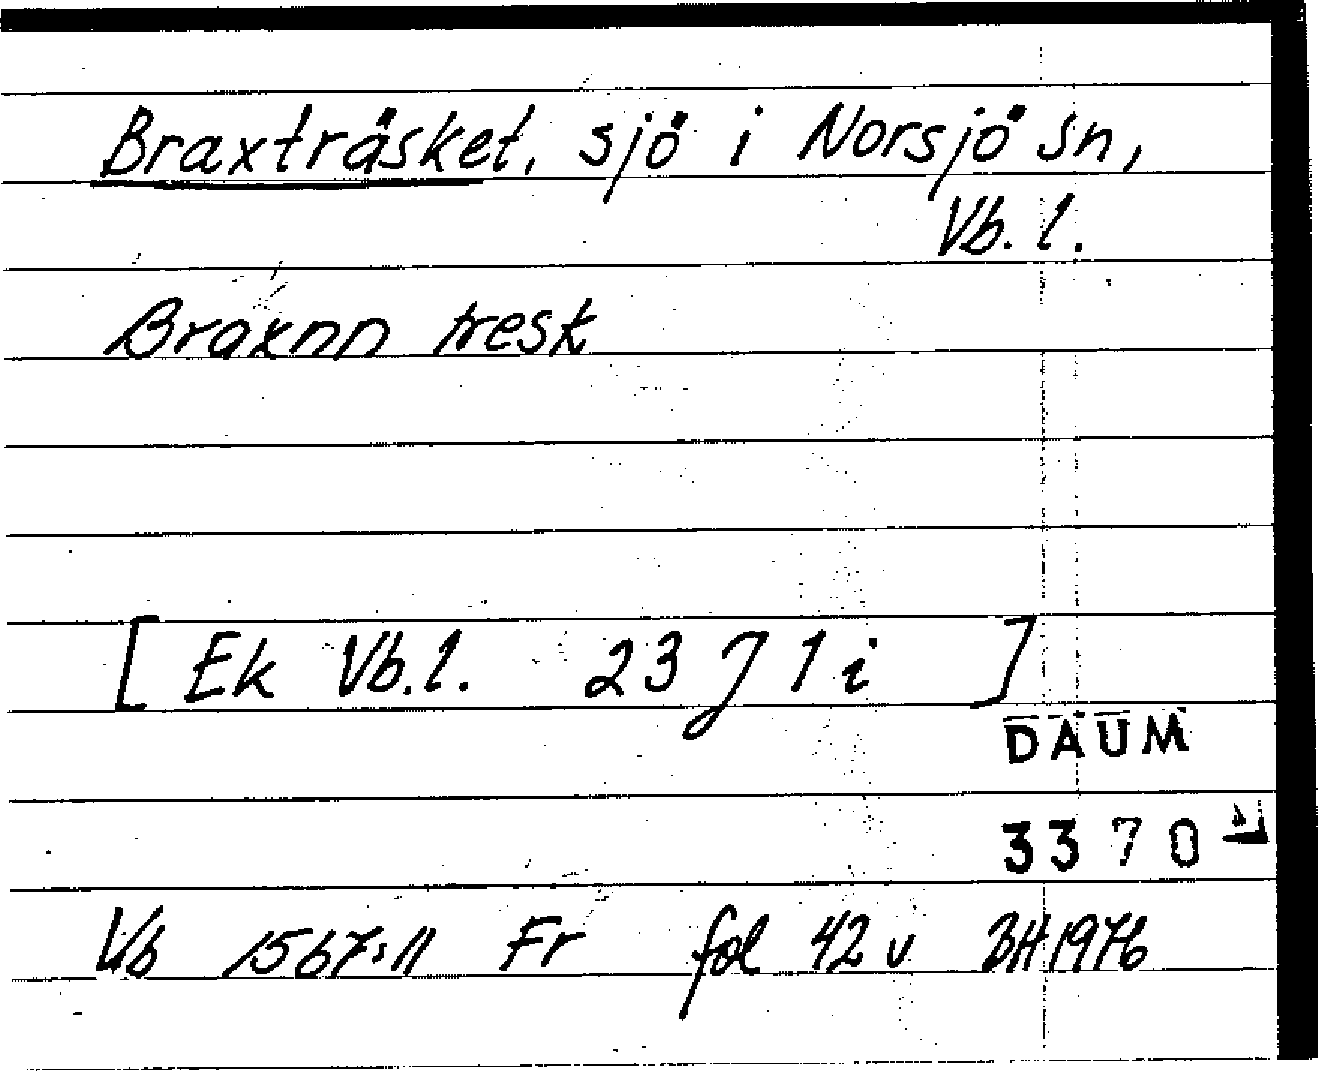 Braxträsket, sjö i Norsjö sn,
Vb. l.
Braxnn tresk
[ Ek Vb. l. 23 J 1 i ]
DAUM
3370
Vb 1567:11 Fr fol 42 v BH 1976